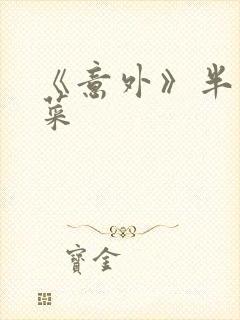 《意外》半
菜
寶金